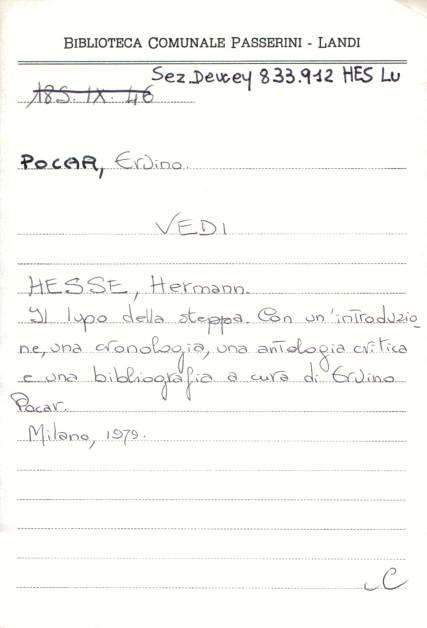 BIBLIOTECA COMUNALE PASSERINI - LANDI
Sez. Dewey 833.912 HES Lu
185. IX. 46
POCAR, Ervino.
VEDI
HESSE, Hermann.
Il lupo della steppa. Con un'introduzio-
ne, una cronologia, una antologia critica
e una bibliografia a cura di Ervino
Pocar.
Milano, 1979.